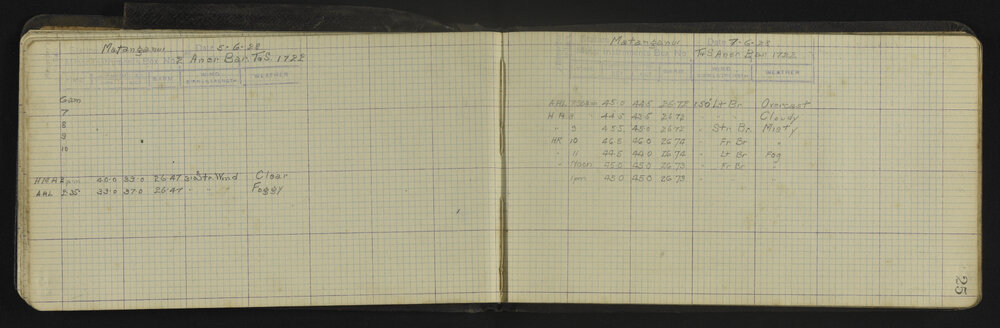 Station Matanganui Date 5-6-28
Instruments Box No 2 Aner Bar T&S 1722
WIND
DIRN & STRENGTH
WEATHER
6am
7
8
9
10
HMH 2pm 40.0 39.0 26.47 Str Wnd Clear
AHL 2.35 39.0 37.0 26.47 " " Foggy
Matanganui Date 7-6-28
Box No T&S Aner Bar 1722
WIND
DIRN & STRENGTH
WEATHER
AHL 7 30am 45.0 44.5 26.72 150° Lt Br Overcast
HM 8 " 44.5 43.5 26.72 " " " Cloudy
" 9 45.5 45.0 26.72 " Str Br Misty
HR 10 46.5 46.0 26.74 " Fr Br "
" 11 44.5 44.0 26.74 " Lt Br Fog
" Noon 45.0 45.0 26.73 " Fr Br "
1pm 45.0 45.0 26.73 " " " "
25